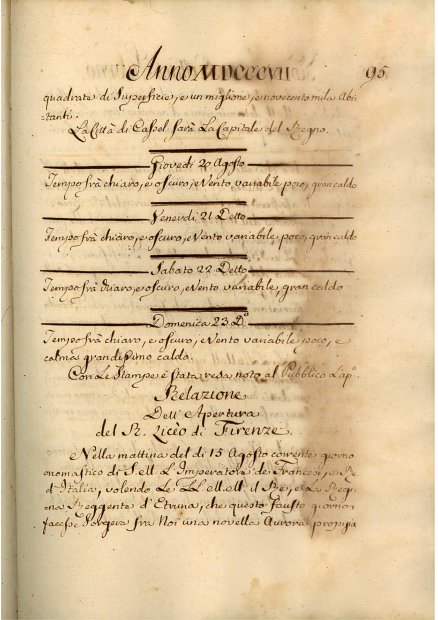 Anno MDCCCVII 95
quadrate di Superficie, e un miglione, e novecento mila Abi-
tanti.
La Città di Cassel sarà La Capitale del Regno.
Giovedì 20 Agosto
Tempo frà chiaro, e oscuro, e Vento variabile poco, gran caldo
Venerdì 21 Detto
Tempo frà chiaro, e oscuro, e Vento variabile poco, gran caldo
Sabato 22 Detto
Tempo frà chiaro, e oscuro, e Vento variabile, gran caldo
Domenica 23 D.º
Tempo frà chiaro, e oscuro, e Vento variabile poco, e
calma grandissimo caldo.
Con Le Stampe è stata resa noto al Pubblico La p.
Relazione
Dell' Apertura
del R. Licèo di Firenze.
Nella mattina del dì 15 Agosto corrente giorno
nomastico di S. M. L'Imperatore de Francesi, e Re
d'Italia, volendo Le LL. MM. il Re, e La Regi-
na Reggente d'Etruria, che questo fausto giorno
facesse Sorgere fra Noi una novella Aurora propizia